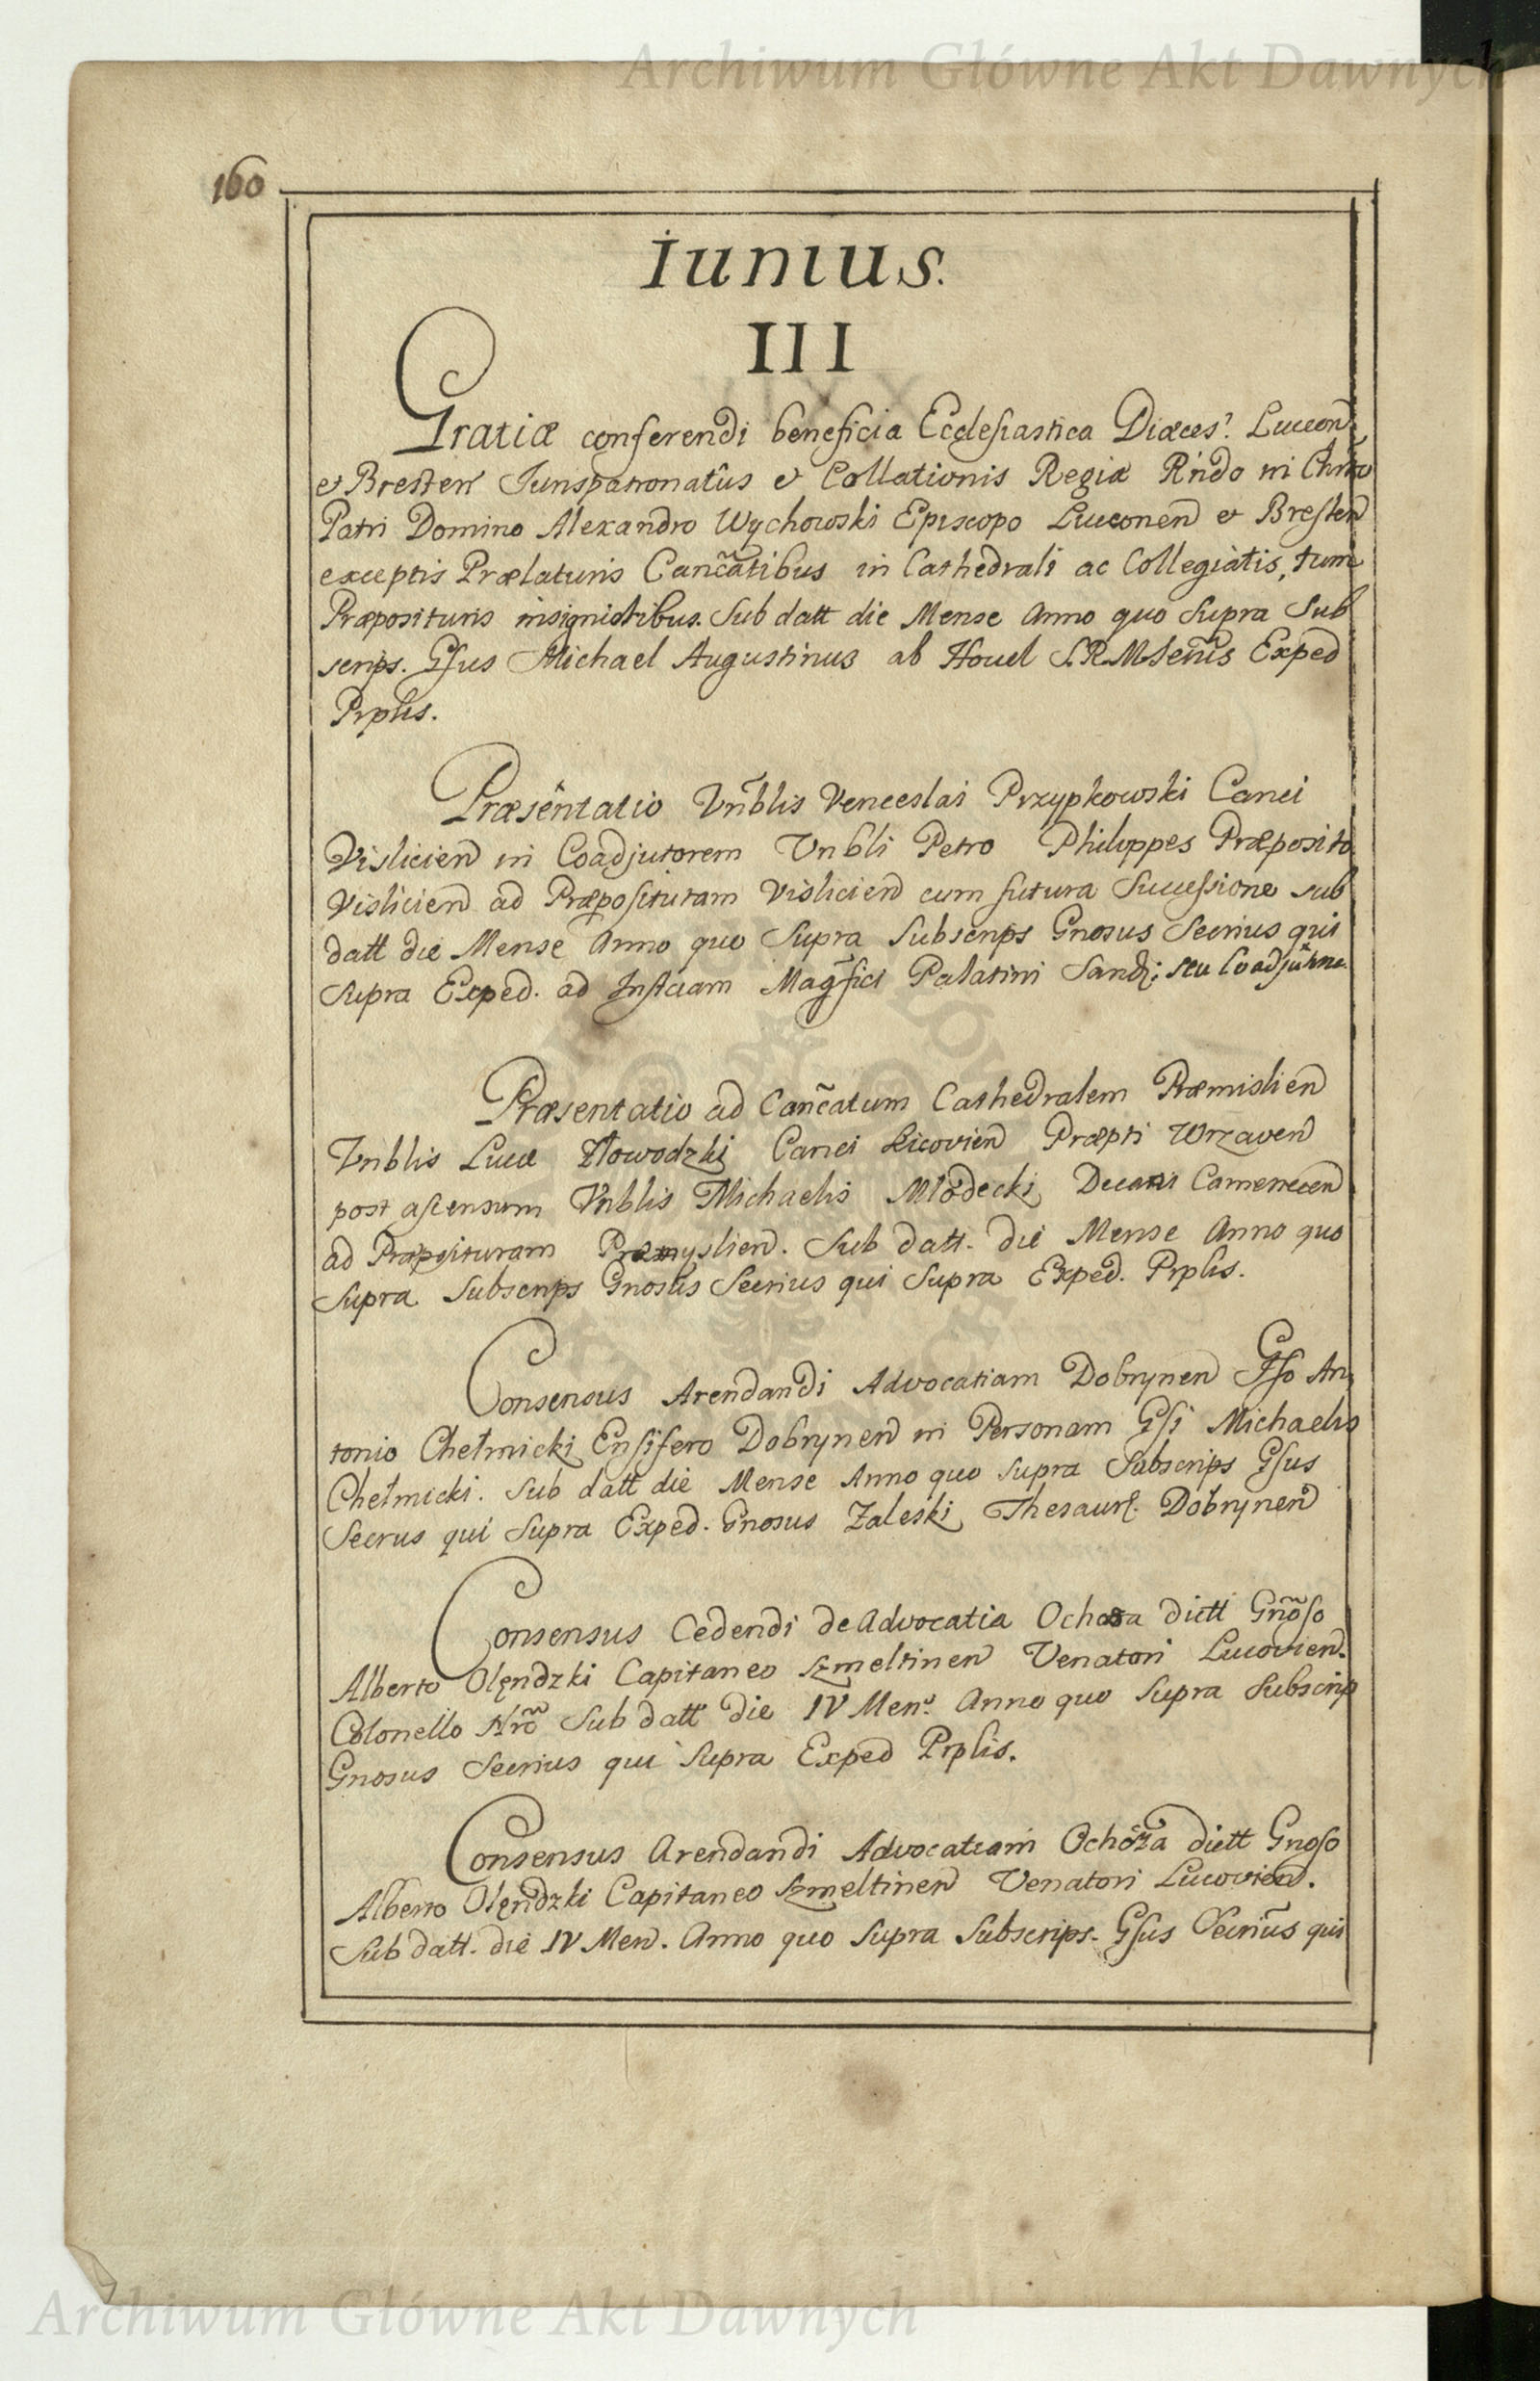 Archiwum Główne Akt Dawnych
160
Iunius.
III
Gratiæ conferendi beneficia Ecclesiastica Diæces. Luceon
et Bresten Iurispatronatûs et Collationis Regiæ Rndo in Chrto
Patri Domino Alexandro Wychowski Episcopo Luceonen et Bresten
exceptis Prælaturis Cancatibus in Cathedrali ac Collegiatis, tum
Præposituris insignioribus. Sub datt die Mense Anno quo Supra Sub
scrips. Gsus Michael Augustinus ab Houel S.R.M. Secrius Exped
Prplis.
Præsentatio Vnblis Venceslai Przypkowski Canci
Vislicien in Coadjutorem Vnbli Petro Philippes Præposito
Vislicien ad Præposituram Vislicien cum futura Successione sub
datt die Mense Anno quo Supra Subscrips Gnosus Secrius qui
Supra Exped. ad Instciam Magfici Palatini Sand: seu
Præsentatio ad Cancatum Cathedralem Præmislien
Vnblis Lucæ Nowodzki Canci Kicovien Præpti Wrzaven
post ascensum Vnblis Michaelis Młodecki Decani Camenecen
ad Præposituram Præmyslien. Sub datt. die Mense Anno quo
Supra Subscrips Gnosus Secrius qui Supra Exped. Prplis.
Consensus Arendandi Advocatiam Dobrynen Gso An,
tonio Chełmicki Ensifero Dobrynen in Personam Gsi Michaelis
Chełmicki. Sub datt die Mense Anno quo Supra Subscrips Gsus
Secrus qui Supra Exped. Gnosus Zaleski Thesaur. Dobrynen
Consensus Cedendi de Advocatia Ochoza dictt Gnoso
Alberto Olędzki Capitaneo Szmeltinen Venatori Lucovien.
Colonello Nro Sub datt die IV Men. Anno quo Supra Subscrip
Gnosus Secrius qui Supra Exped Prplis.
Consensus Arendandi Advocatiam Ochoża dictt Gnoso
Alberto Olędzki Capitaneo Szmeltinen Venatori Lucovien.
Sub datt. die IV Men. Anno quo Supra Subscrips. Gsus Secrius qui
Archiwum Główne Akt Dawnych